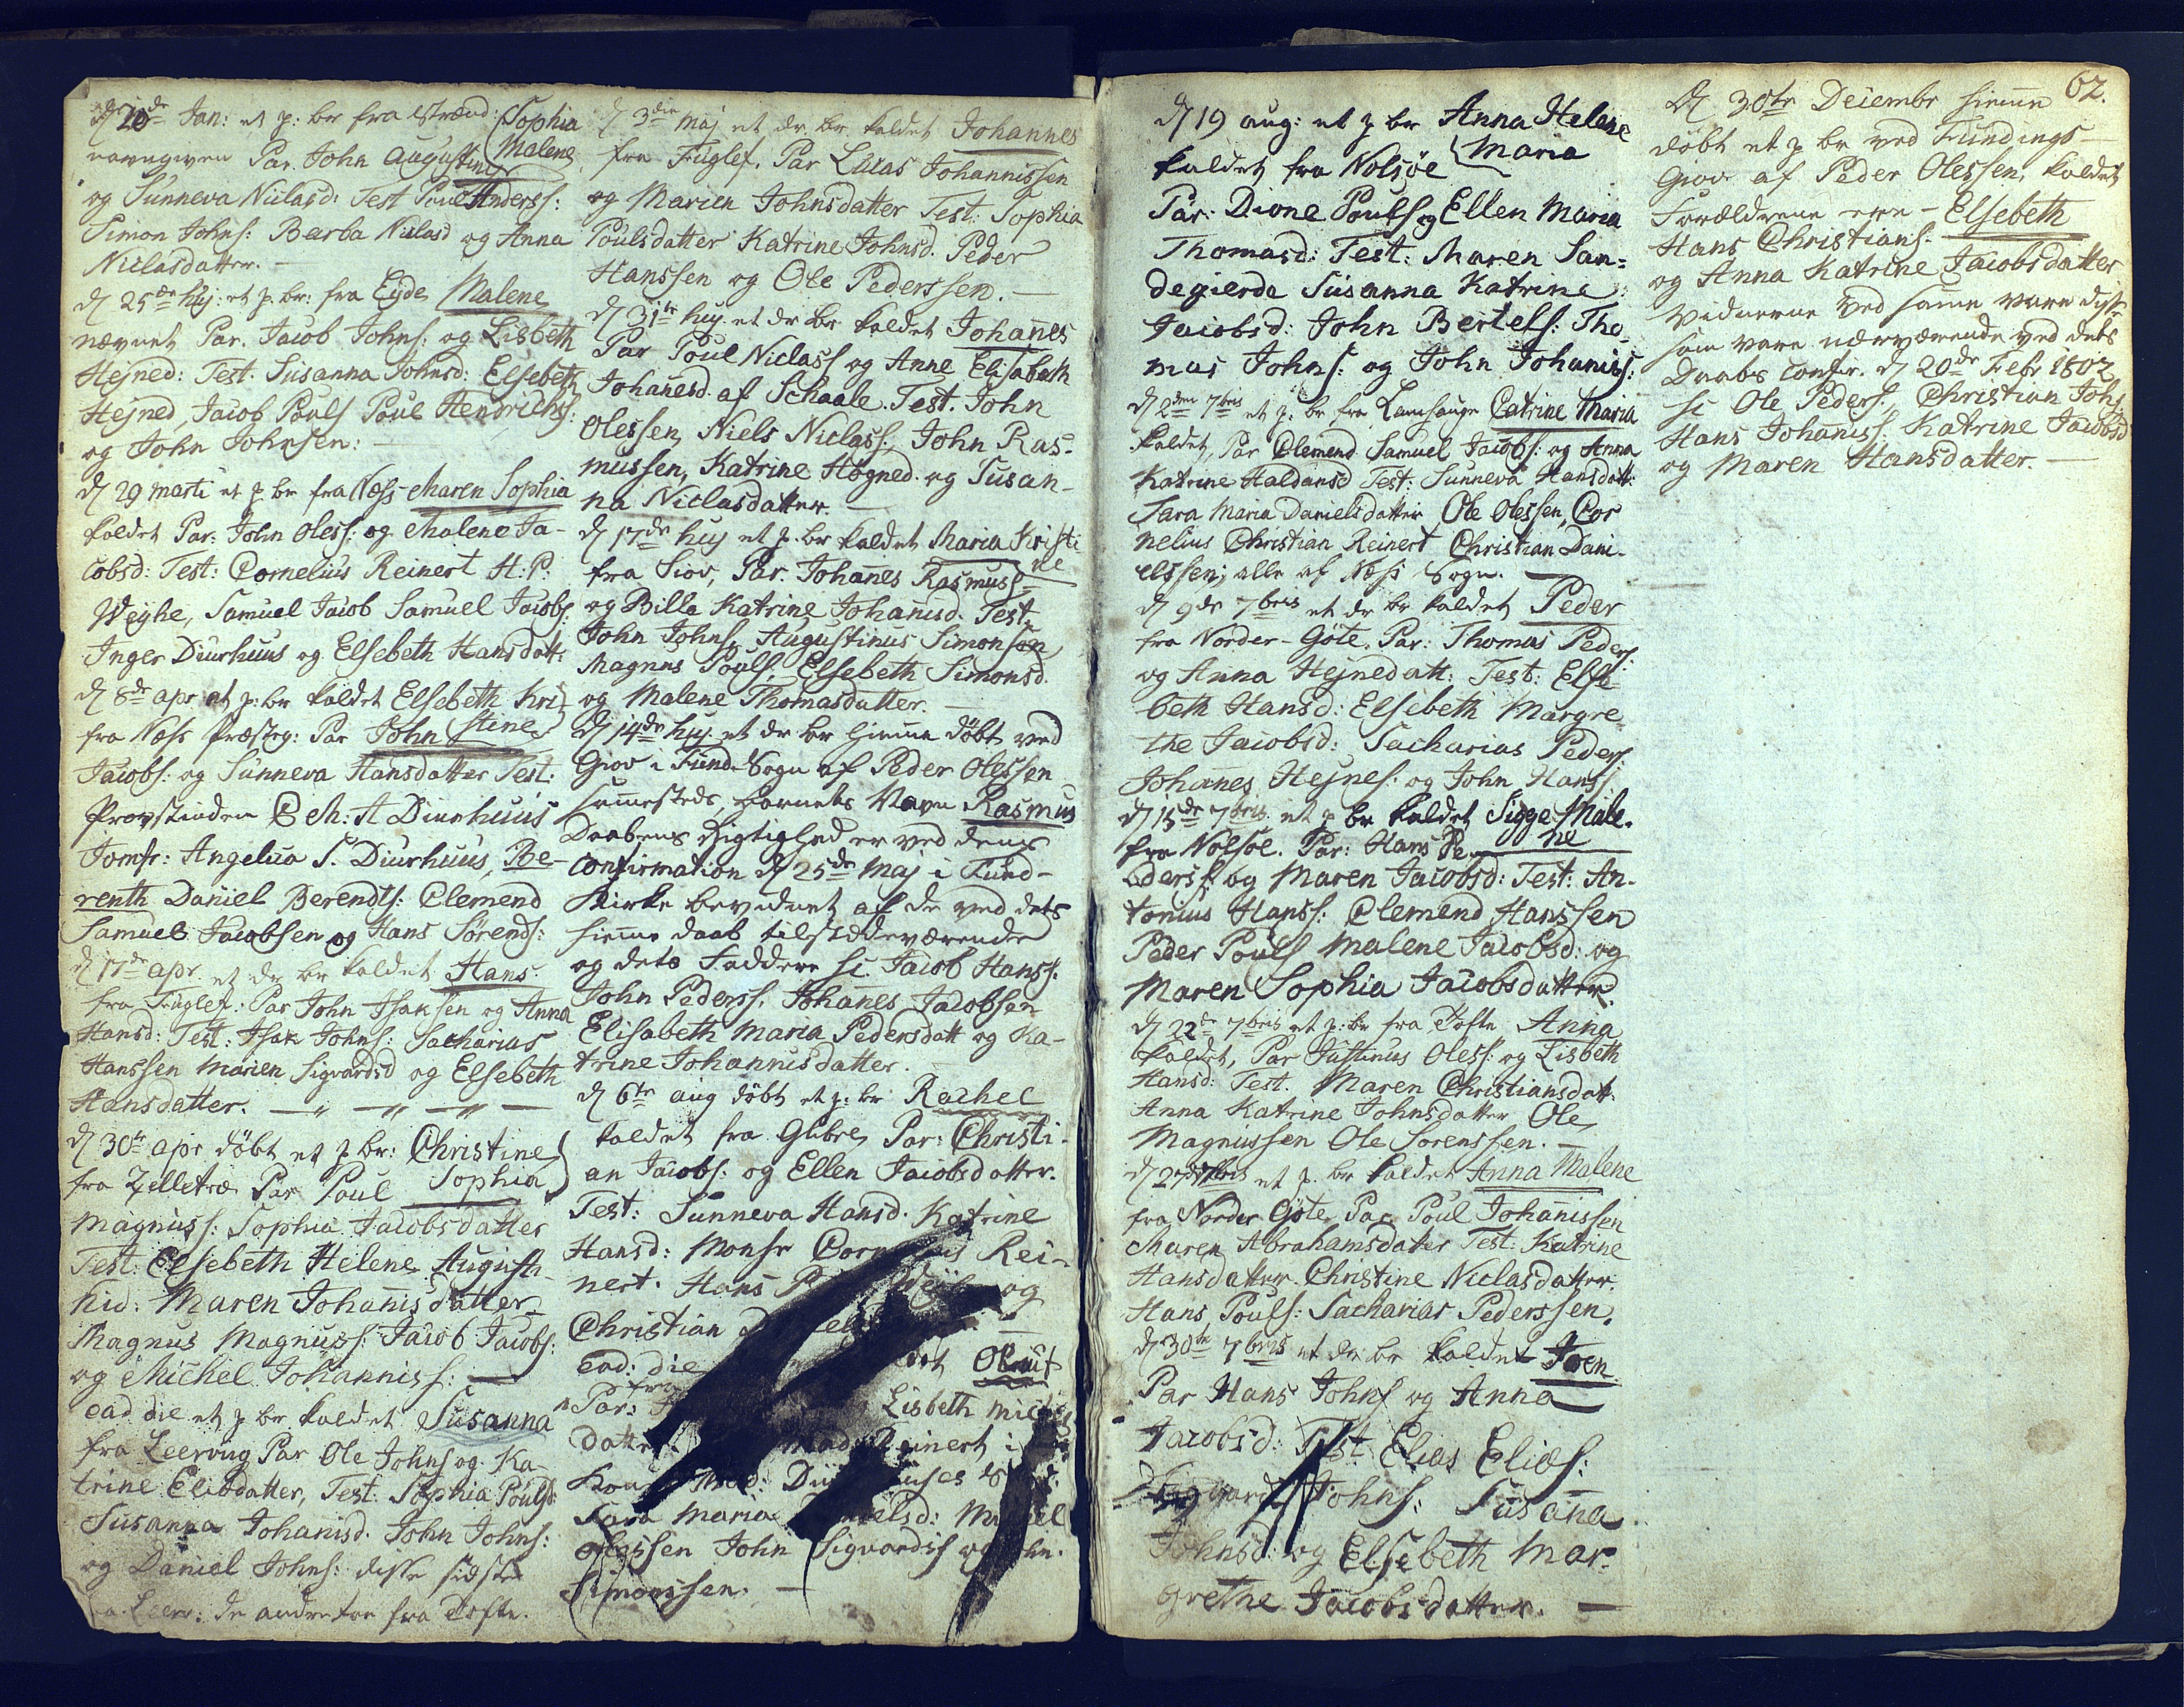 d 20de Jan: et p: br fra Strænd: Sophia
navngiven Par. John Augustins Malene
og Sunneva Niclasd: Test Poul Anderss:
Simon Johns: Barba Niclasd og Anna
Niclasdatter. —
d 25de huj: et p. br: fra Eyde Malene
nævnet Par. Jacob Johns: og Lisbeth
Hejned: Test. Susanna Johnsd: Elsebeth
Hejned, Jacob Pouls Poul Hendrichs:
og John Johnsen: —
d 29 marti et p br fra Næss Maren Sophia
kaldet Par: John Oless: og Malene Ja-
cobsd: Test: Cornelius Reinert H: P:
Weyhe, Samuel Jacob Samuel Jacobs:
Inger Diurhuus og Elsebeth Hansdatt:
d 8de apr et p: br kaldet Elsebeth Kri-
fra Næss Præsteg: Par John stine
Jacobs: og Sunneva Hansdatter Test:
Provstinden C M: A Diurhuus
Jomfr: Angelica S. Diurhuus, Be-
renth Daniel Berendts: Clemend
Samuel Jacobsen og Hans Sörends:
d 17de apr. et dr br kaldet Hans
fra Fuglef: Par John Isaksen og Anna
Hansd: Test: Isak Johns: Sacharias
Hanssen Marien Sigvardsd og Elsebeth
Hansdatter. —
d 30te apr döbt et p br: Christine
fra Zelletræ Par Poul Sophia
Magnuss: Sophia Jacobsdatter
Test: Elsebeth Helene Augusti-
nid: Maren Johannisdatter
Magnus Magnuss: Jacob Jacobs:
og Michel Johanniss: —
ead die et p br kaldet Susanna
fra Leervug Par Ole Johns og Ka-
trine Eliasdatter, Test: Sophia Poulsd
Susanna Johanisd. John Johns:
og Daniel Johns: disse sidste
fra Leerv: de andre toe fra Tofte.
d 3die Maj et dr. br. kaldet Johannes
fra Fuglef. Par Lucas Johannissen
og Marien Johnsdatter Test: Sophia
Poulsdatter Katrine Johnsd. Peder
Hanssen og Ole Pederssen. —
d 31te huj. et dr br. kaldet Johanes
Par Poul Niclass og Anne Elisabeth
Johanesd. af Schaale. Test. John
Olessen, Niels Niclass:, John Ras-
mussen, Katrine Högned. og Susan-
na Niclasdatter. —
d 17de huj et p. br kaldet Maria Kristi
fra Siov, Par. Johanes Rasmuss ne
og Billa Katrine Johanisd. Test.
John Johns, Augustinus Simonsen
Magnus Pouls, Elsebeth Simonsd.
og Malene Thomasdatter. —
d 14de huj. et dr br hiemme döbt ved
Giov i Fund. Sogn af Peder Olessen
sammesteds, barnets Navn Rasmus
Daabens Rigtighed er ved dens
confirmation d 25de Maj i Fund-
Kirke bevidnet af de ved dets
hiemme daab tilstædeværende
og dets Faddere sc. Jacob Hanss.
John Pederss. Johanes Jacobsen
Elisabeth Maria Pedersdatt og Ka-
trine Johannisdatter.
d 6te aug döbt et p: br Rachel
kaldet fra Glibre, Par: Christi-
an Jacobs: og Ellen Jacobsdatter.
Test: Sunneva Hansd. Katrine
Hansd: Monsr Cornelius Rei-
nert. Hans og
Christian
ead: die
Par: fra Lisbeth
datter Reinert i

Sara Maria Danielsd:
Olessen John Sigvardss og
Simonssen. —
62.
d 19 aug: et p br Anna Helene
kaldet fra Nolsöe Maria
Par: Dione Pouls og Ellen Maria
Thomasd: Test: Maren San=
degierde Susanna Katrine
Jacobsd: John Bertels: Tho-
mas Johns: og John Johaniss:
d 2den 7bris et p: br fra Lamhauge Catrine Maria
kaldet, Par Clemend Samuel Jacobs: og Anna
Katrine Haldansd Test: Sunneva Hansdatt:
Sara Maria Danielsdatter, Ole Olessen, Cor
nelius Christian Reinert Christian Dani-
elssen, alle af Næss Sogn. —
d 9de 7bris et dr br kaldet Peder
fra Norder-Göte, Par: Thomas Peders:
og Anna Hejnedatt: Test: Else-
beth Hansd: Elsebeth Margre-
the Jacobsd: Sacharias Peders.
Johanes Hejnes: og John Hanss
d 15de 7bris et p br kaldet Sigge Male-
fra Nolsöe. Par: Hans Pe- ne
derss: og Maren Jacobsd: Test: An-
tonius Hanss: Clemend Hanssen
Peder Pouls Malene Jacobsd: og
Maren Sophia Jacobsdatter.
d 22de 7bris et p: br fra Tofte Anna
kaldet, Par Justinus Oless: og Lisbeth
Hansd: Test. Maren Christiansdatt
Anna Katrine Johnsdatter Ole
Magnussen Ole Sorenssen. —
d 27de 7bris et p. br kaldet Anna Malene
fra Norder Göte Par Poul Johanissen
Maren Abrahamsdatter Test: Katrine
Hansdatter. Christine Niclasdatter.
Hans Pouls: Sacharias Pederssen.
d 30te 7bris et dr br kaldet Joen
Par Hans Johns og Anna
Jacobsd: Test Elias Elias:
Sigvard Johns: Susana
Johnsd: og Elsebeth Mar-
grethe Jacobsdatter. —
d 30te Decembr hiemme
döbt et p br ved Fundings-
Giov af Peder Olessen, kaldet
Forældrene ere — Elsebeth
Hans Christians.
og Anna Katrine Jacobsdatter
Vidnerne ved samme vare disse
som vare nærværende ved dets
Daabs confir. d 20de Febr 1802
sc Ole Peders, Christian Johs
Hans Johaniss: Katrine Jacobsd
og Maren Hansdatter. —